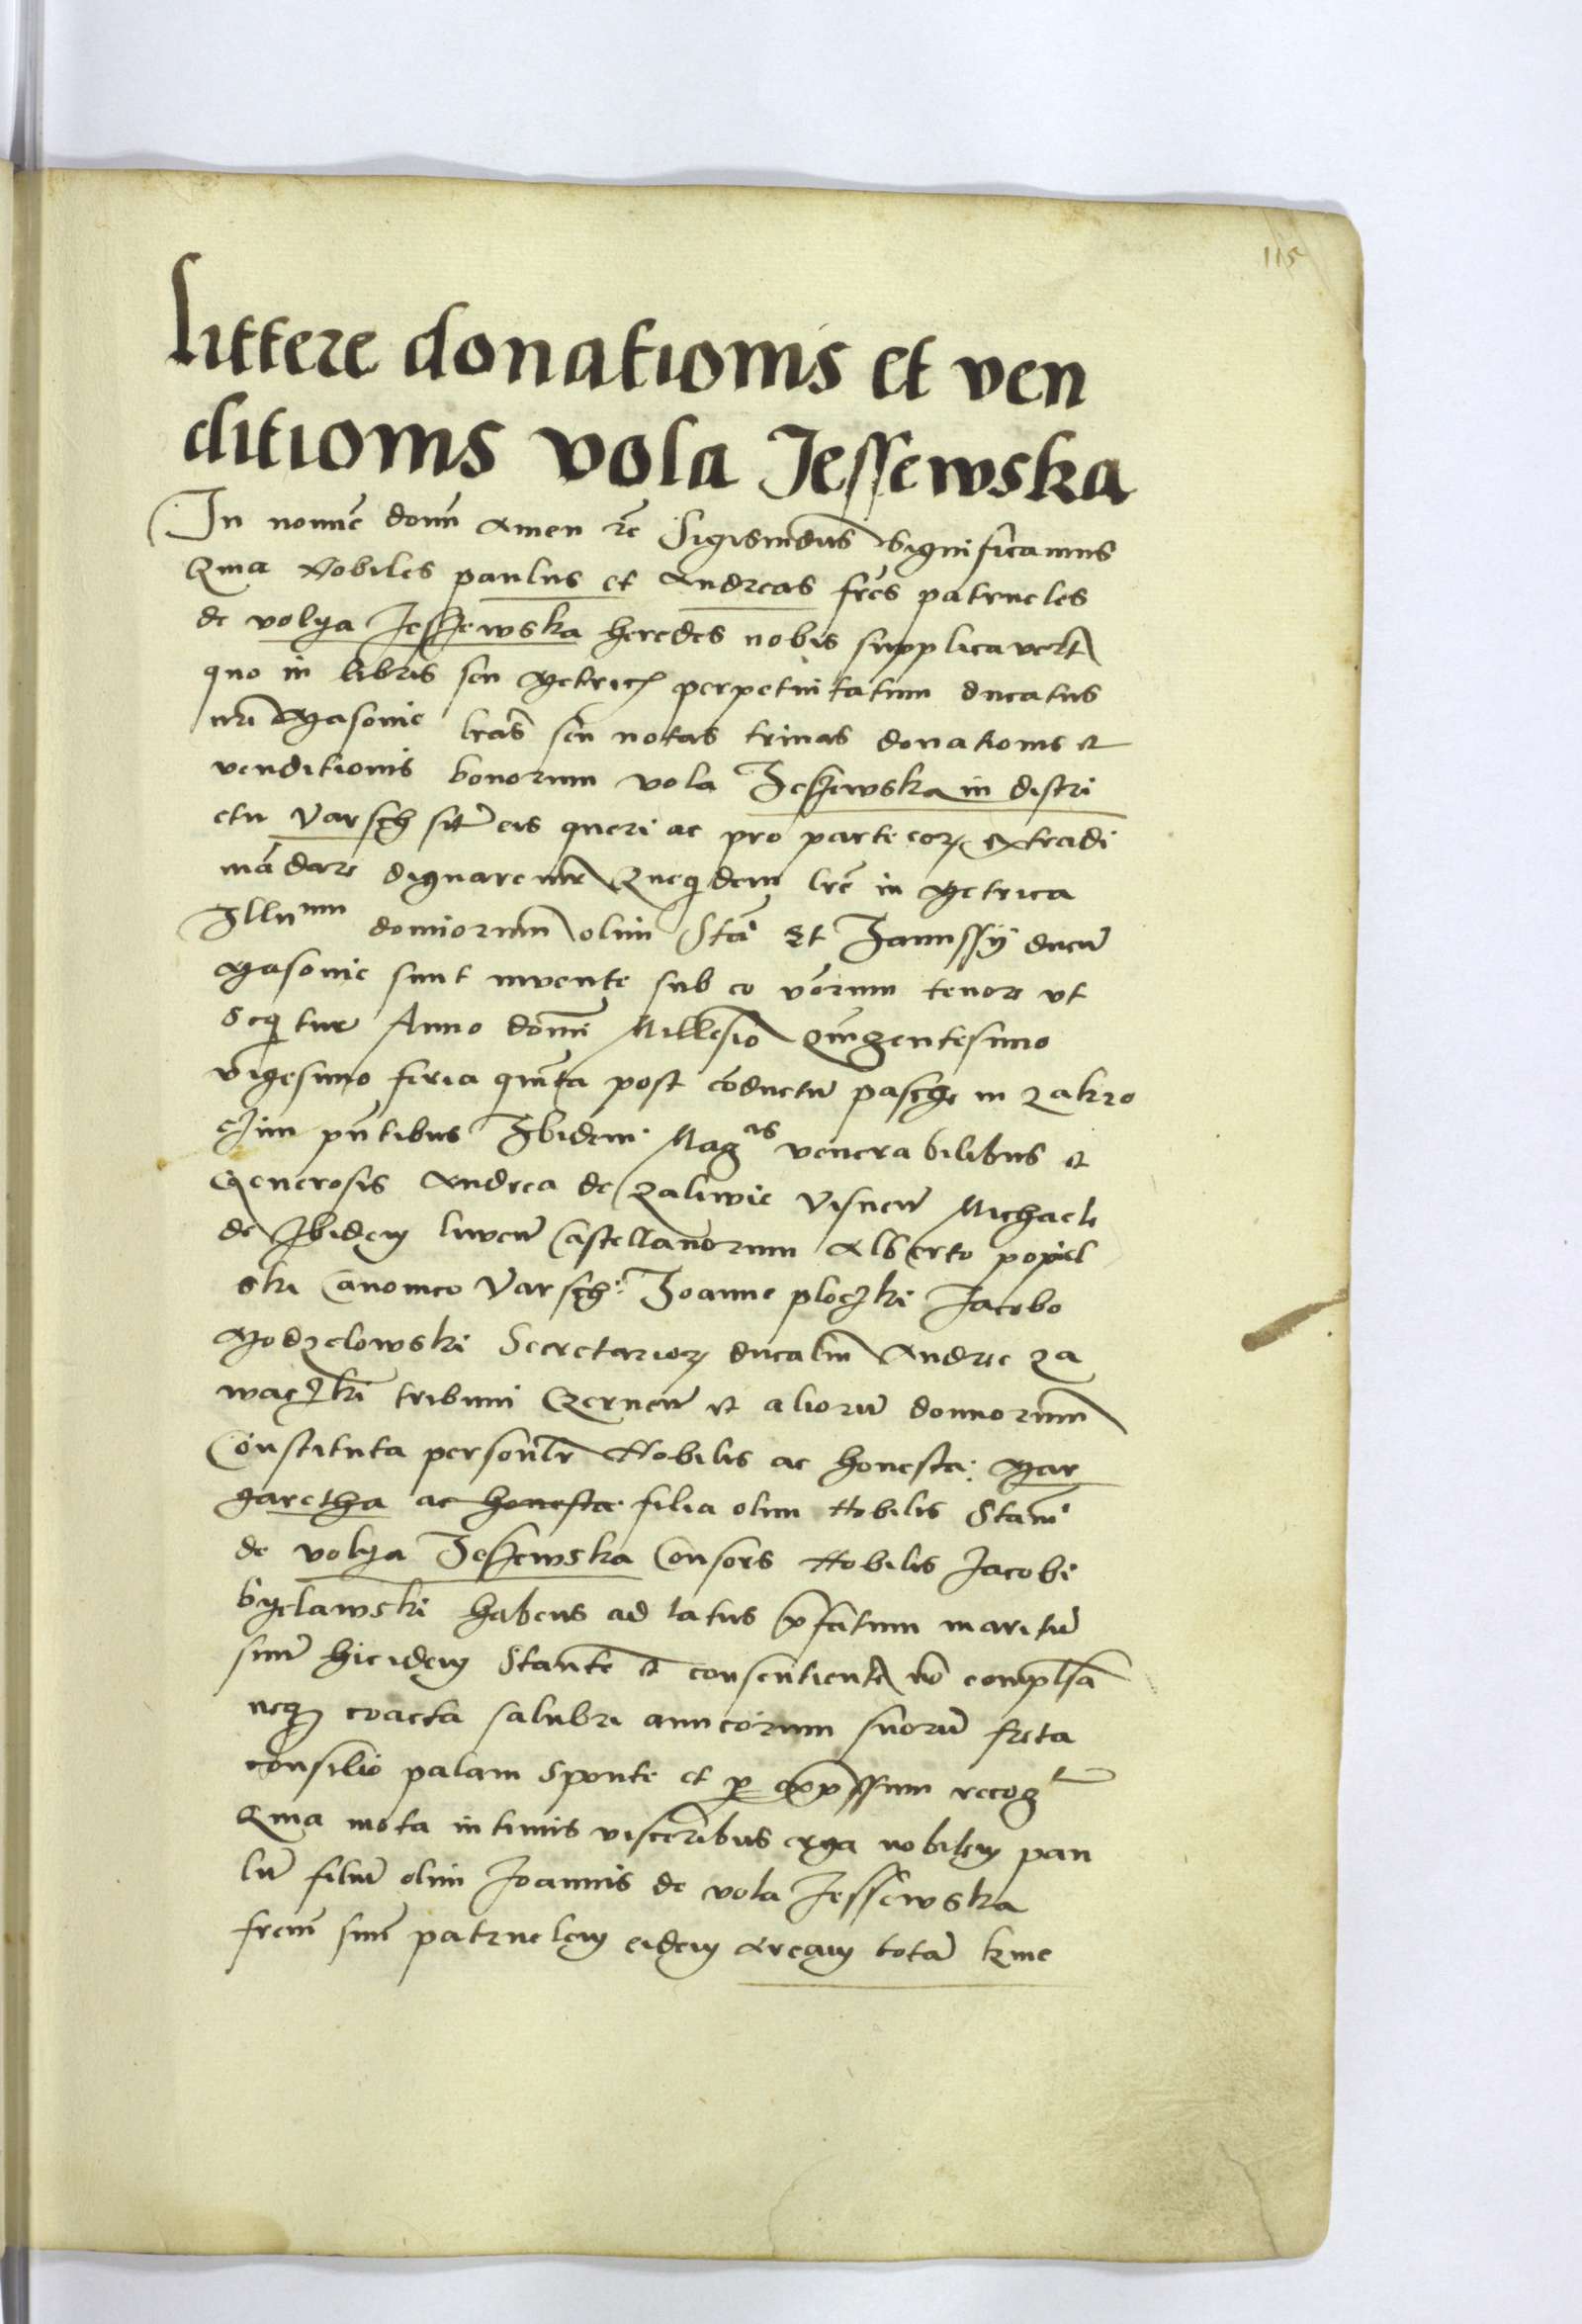 115
littere donationis et ven
ditionis vola Jessewska
In nomīe domī Amen rc̄ Sigismūdus Significamus
Qma Nobiles paulus et Andreas fr̄es patrueles
de volya Jessewska heredes nobis supplicavert̄
quo in libris seu Metricꝭ perpetuitatum ducatus
nr̄i Masovie lrās seu notas trinas donationis et
venditionis bonorum vola Jessewska in distri
ctu Varsch̄ sit̄ eis queri ac pro parte eorꝝ extradi
mādare dignaremr̄ Queqdem lrē in Metrica
Illuᵐᵘᵐ domiorum olim Stāi Et Janussij ducū
Masovie sunt invente sub eo v̄borum tenore vt
Seqitur Anno domī Millesīo Quīgentesimo
vigesimo feria quīta post cōductū pasche in Zakro
czim pn̄tibus Ibidem Magᶜⁱˢ venerabilibus et
Generosis Andrea de Zaliwie Visnen̄ Michaele
de Ibidem liwen̄ Castellanorum Alberto popiel
ski Canonico Varsch̄: Joanne ploczki Jacobo
Modzelowski Secretariorꝝ ducaliū Andree Za
waczki tribuni Czernen̄ et aliorū domnorum
Cōnstituta personlr̄ Nobilis ac honesta: Mar
garetha ac honesta filia olim Nobilis Stanī
de volya Jessewska Consors Nobilis Jacobi
byelawski habens ad latus p̄fatum maritū
suū hicidem Stantē et consentientē nō complsā
neqꝫ coacta salubri amicorum suorū freta
consilio palam Sponte et ꝑ exp̄ssum recogᵗ
Qma mota intimis visceribus erga nobilem pau
lū filiū olim Joannis de vola Jessewska
frem̄ suū patruelem eidem Aream totā kme